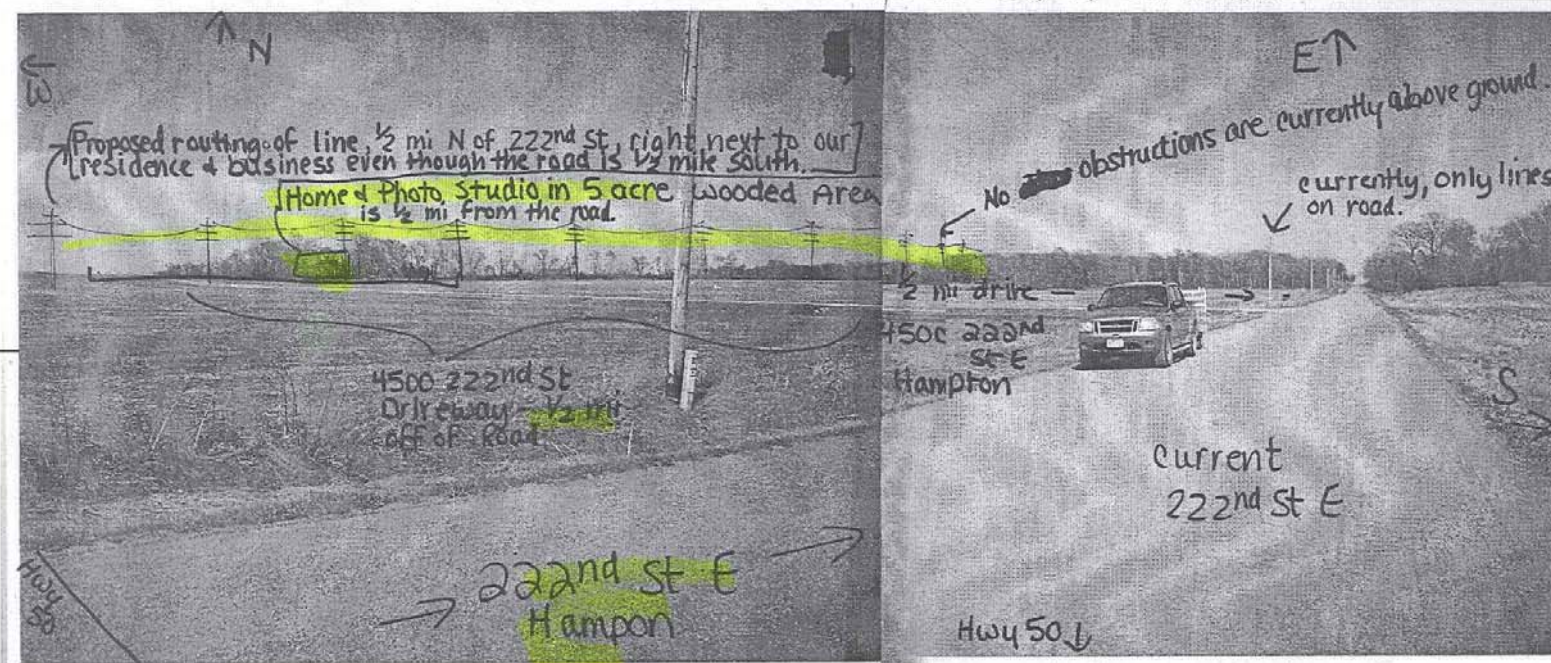 N
W
Proposed routing of line, 1/2 mi N of 222nd St, right next to our
residence & business even though the road is 1/2 mile south.
Home & Photo Studio in 5 acre wooded Area
is 1/2 mi from the road.
4500 222nd St
Driveway - 1/2 mi
off of Road
222nd St E
Hampon
Hwy
50
E
No obstructions are currently above ground.
currently, only lines
on road.
1/2 mi drive
4500 222nd
St E
Hampton
S
Current
222nd St E
Hwy 50